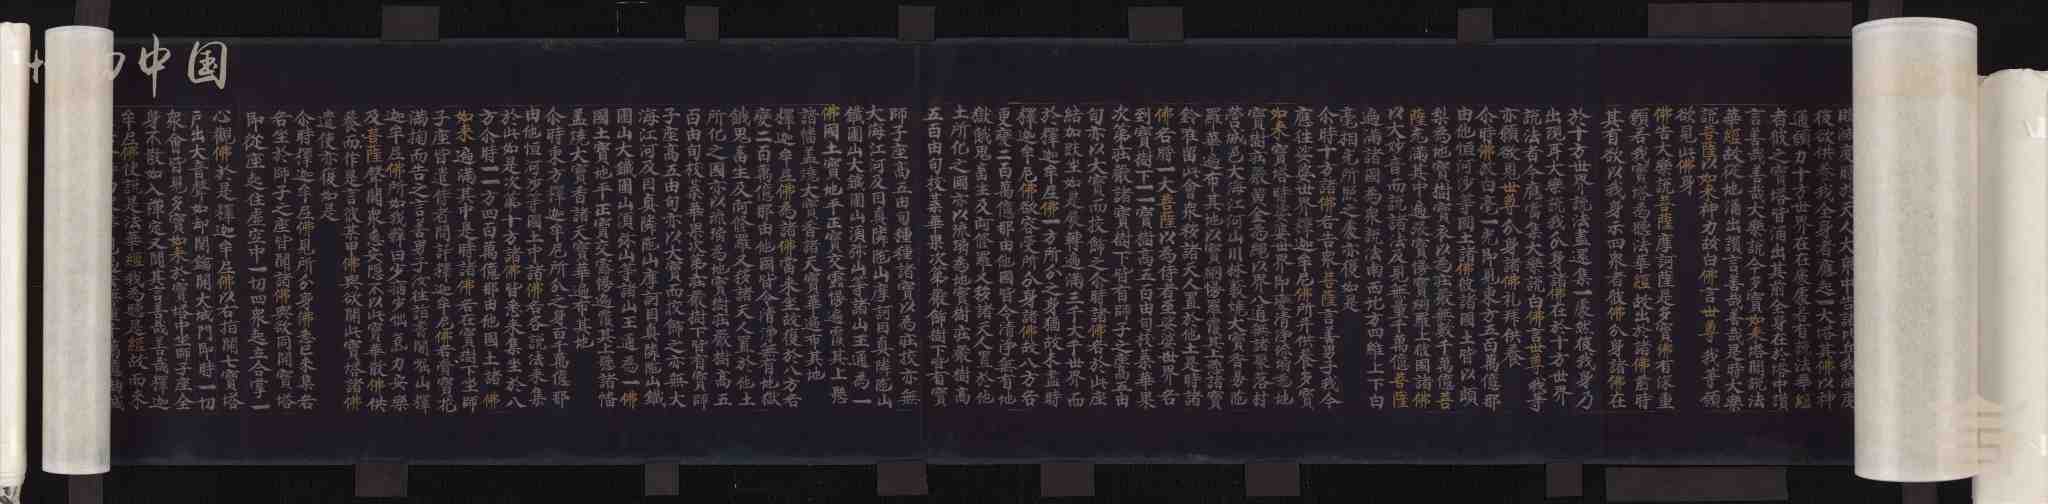 後欲供養我全身者應起一大塔其佛以神
通願力十方世界在在處處若有說法華經
者彼之寶塔皆涌出其前全身在於塔中讚
言善哉善哉大樂說今多寶如來塔聞說法
華經故從地涌出讚言善哉善哉是時大樂
說菩薩以如來神力故白佛言世尊我等願
欲見此佛身
佛告大樂說菩薩摩訶薩是多寶佛有深重
願若我寶塔為聽法華經故出於諸佛前時
其有欲以我身示四眾者彼佛分身諸佛在
於十方世界說法盡還集一處然後我身乃
出現耳大樂說我分身諸佛在於十方世界
說法者今應當集大樂說白佛言世尊我等
亦願欲見世尊分身諸佛礼拜供養
尒時佛放白毫一光即見東方五百萬億那
由他恒河沙等國土諸佛彼諸國土皆以頗
梨為地寶樹寶衣以為莊嚴無數千萬億菩
薩充滿其中遍張寶幔寶網羅上彼國諸佛
以大妙音而說諸法及見無量千萬億菩薩
遍滿諸國為眾說法南西北方四維上下白
毫相光所照之處亦復如是
尒時十方諸佛各告眾菩薩言善男子我今
應往娑婆世界釋迦牟尼佛所并供養多寶
如來寶塔時娑婆世界即變清淨瑠璃為地
寶樹莊嚴黃金為繩以界八道無諸聚落村
營城邑大海江河山川林藪燒大寶香曼陀
羅華遍布其地以寶網幔羅覆其上懸諸寶
鈴唯留此會眾移諸天人置於他土是時諸
佛各將一大菩薩以為侍者至娑婆世界各
到寶樹下一一寶樹高五百由旬枝葉華果
次第莊嚴諸寶樹下皆有師子之座高五由
旬亦以大寶而挍飾之尒時諸佛各於此座
結加趺坐如是展轉遍滿三千大千世界而
於釋迦牟尼佛一方所分之身猶故未盡時
釋迦牟尼佛欲容受所分身諸佛故八方各
更變二百萬億那由他國皆令清淨無有地
獄餓鬼畜生及阿修羅又移諸天人置於他
土所化之國亦以瑠璃為地寶樹莊嚴樹高
五百由旬枝葉華果次第嚴飾樹下皆有寶
師子座高五由旬種種諸寶以為莊挍亦無
大海江河及目真隣陀山摩訶目真隣陀山
鐵圍山大鐵圍山須弥山等諸山王通為一
佛國土寶地平正寶交露幔遍覆其上懸
諸幡蓋燒大寶香諸天寶華遍布其地
釋迦牟尼佛為諸佛當來坐故復於八方各
變二百萬億那由他國皆令清淨無有地獄
餓鬼畜生及阿修羅又移諸天人置於他土
所化之國亦以瑠璃為地寶樹莊嚴樹高五
百由旬枝葉華果次第莊嚴樹下皆有寶師
子座高五由旬亦以大寶而挍飾之亦無大
海江河及目真隣陀山摩訶目真隣陀山鐵
圍山大鐵圍山須弥山等諸山王通為一佛
國土寶地平正寶交露幔遍覆其上懸諸幡
蓋燒大寶香諸天寶華遍布其地
尒時東方釋迦牟尼所分之身百千萬億那
由他恒河沙等國土中諸佛各各說法來集
於此如是次第十方諸佛皆悉來集坐於八
方尒時一一方四百萬億那由他國土諸佛
如來遍滿其中是時諸佛各在寶樹下坐師
子座皆遣侍者問訊釋迦牟尼佛各賷寶花
滿掬而告之言善男子汝往詣耆闍崛山釋
迦牟尼佛所如我辭曰少病少惱氣力安樂
及菩薩聲聞眾悉安隱不以此寶華散佛供
養而作是言彼某甲佛與欲開此寶塔諸佛
遣使亦復如是
尒時釋迦牟尼佛見所分身佛悉已來集各
各坐於師子之座皆聞諸佛與欲同開寶塔
即從座起住虛空中一切四眾起立合掌一
心觀佛於是釋迦牟尼佛以右指開七寶塔
戶出大音聲如却關鑰開大城門即時一切
眾會皆見多寶如來於寶塔中坐師子座全
身不散如入禪定又聞其言善哉善哉釋迦
牟尼佛快說是法華經我為聽是經故而來
中国